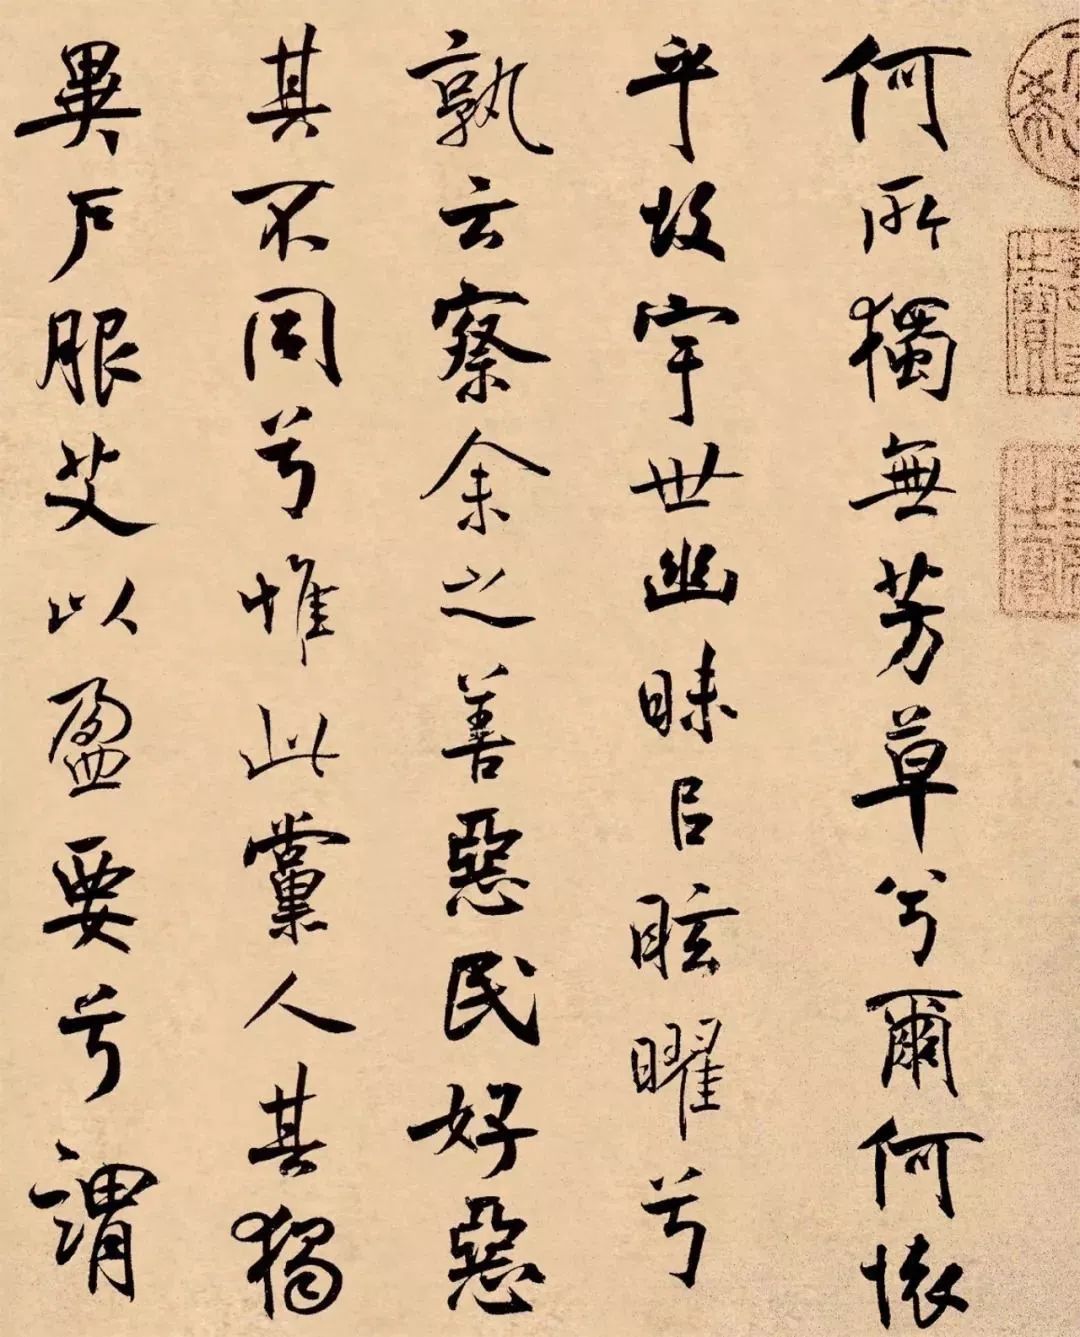 何所獨無芳草兮爾何懷
乎故宇世幽昧㠯眩曜兮
孰云察余之善惡民好惡
其不同兮惟此黨人其獨
異戶服艾以盈要兮謂